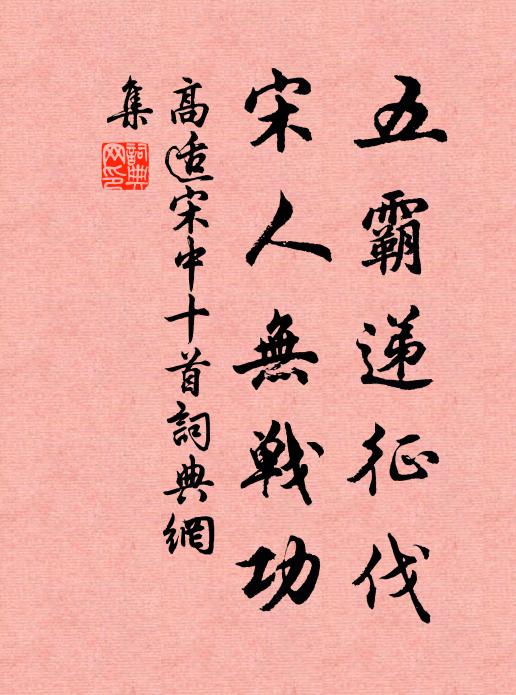 五霸递征伐
宋人無戰功
高适宋中十首詞典網
集
詞典網印